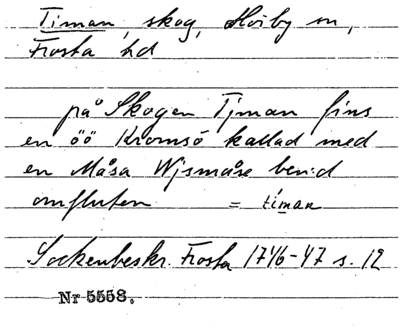 Timan, skog, Hörby sn,
Frosta hd
på Skogen Tjman fins
en öö Kromsö kallad med
en Måsa Wjsmåse ben:d
omfluten = tíman
Sockenbeskr. Frosta 1746-47 s. 12
Nr 5558.